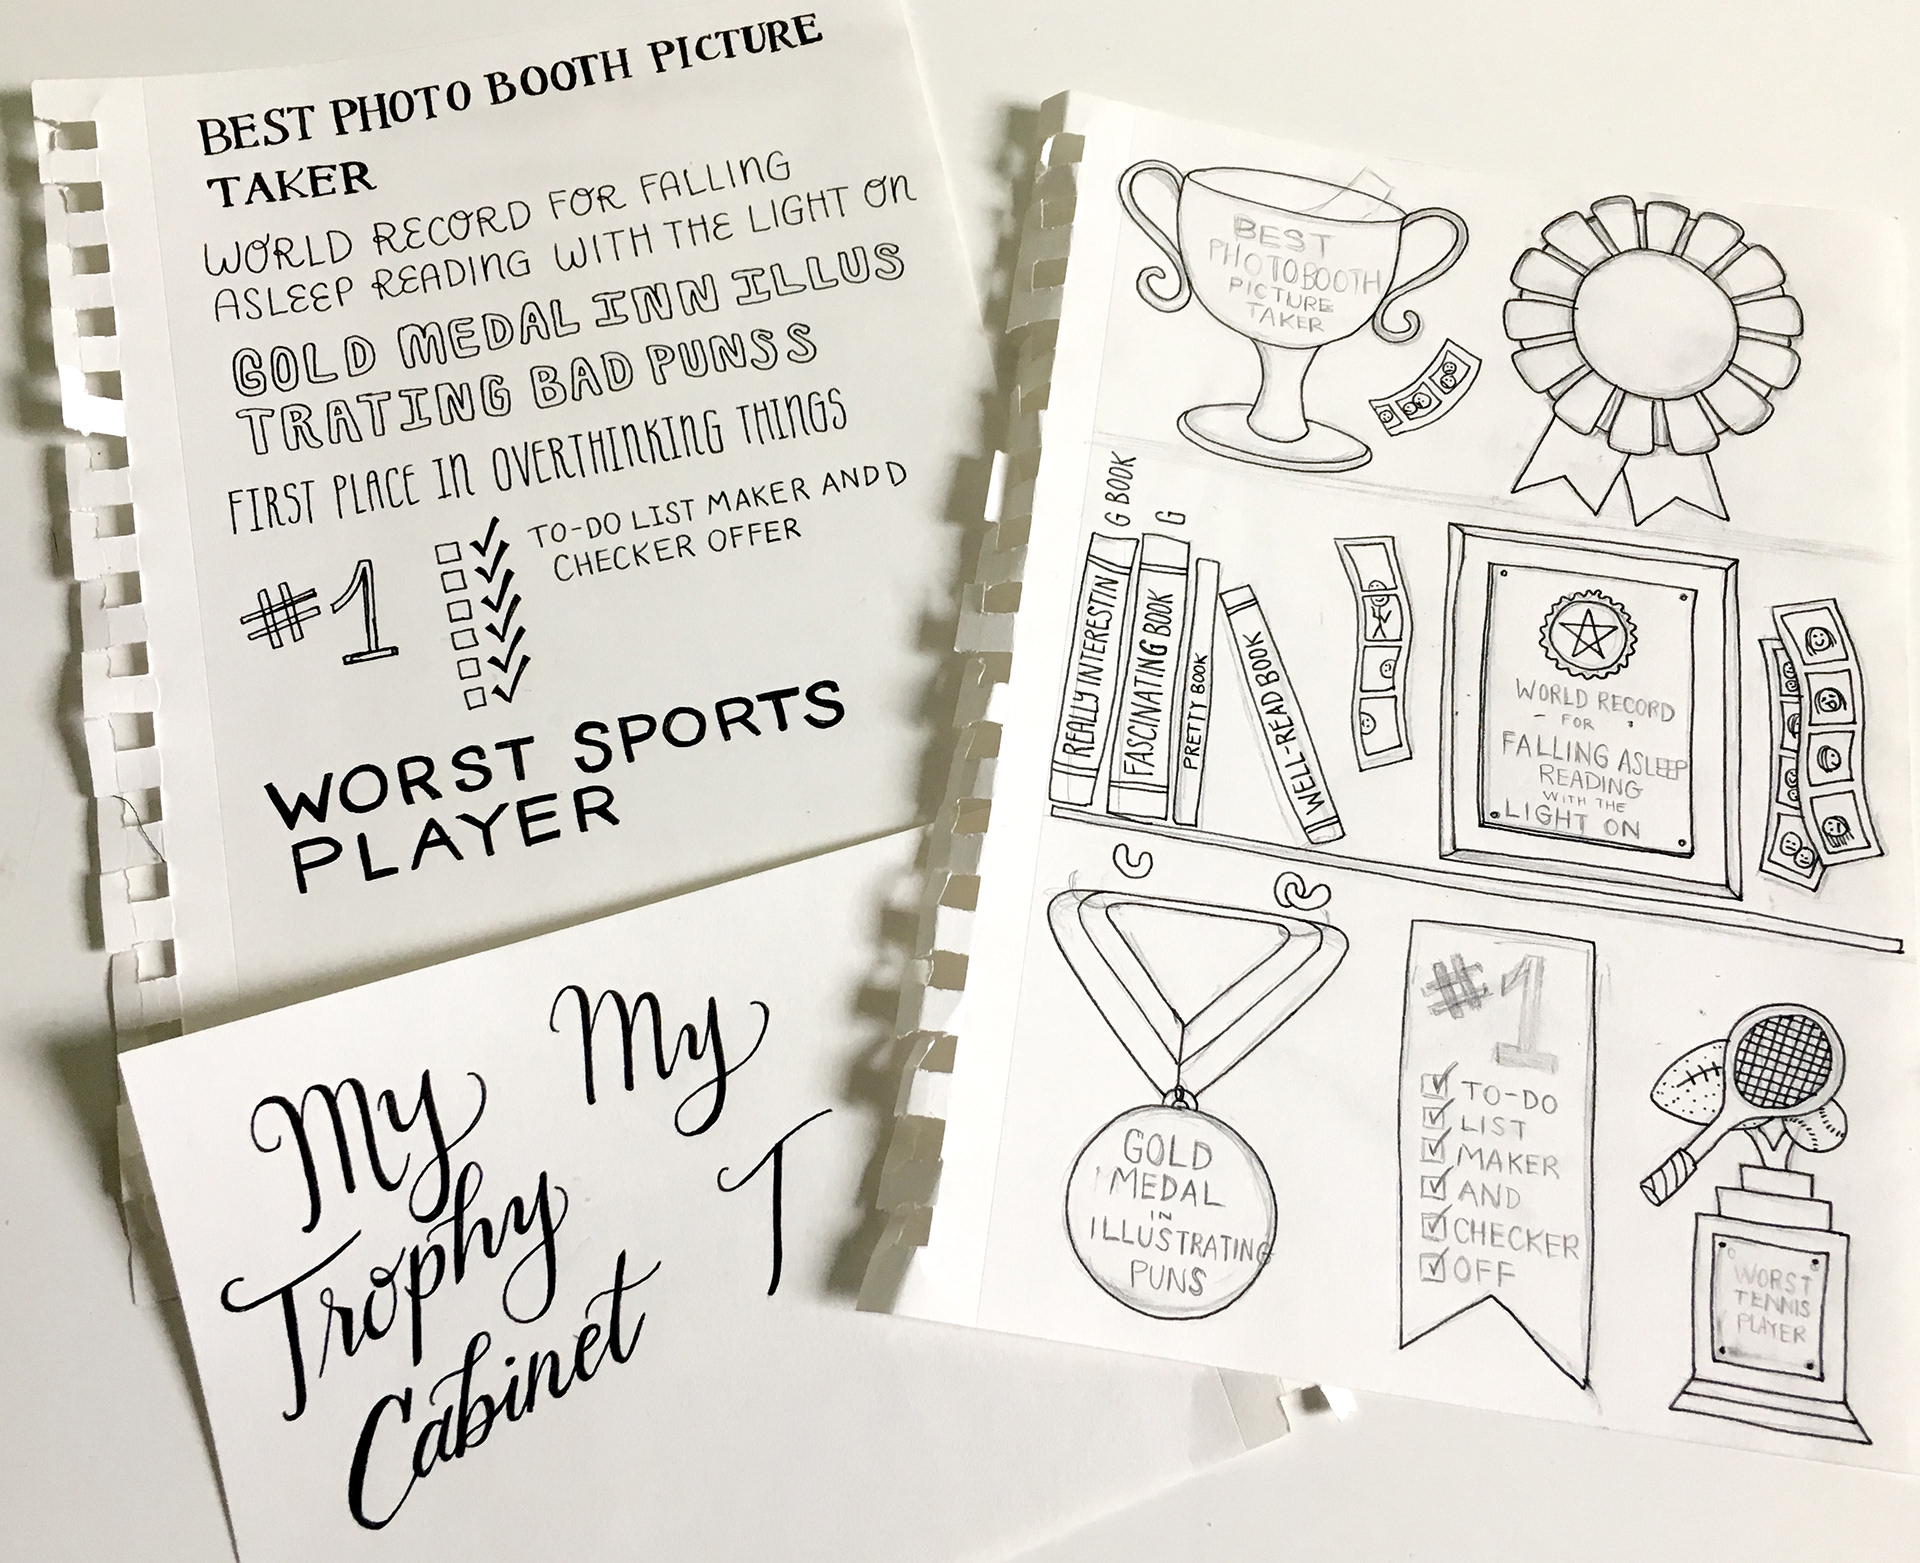 BEST PHOTO BOOTH PICTURE
TAKER
WORLD RECORD FOR FALLING
ASLEEP READING WITH THE LIGHT ON
GOLD MEDAL INN ILLUS
TRATING BAD PUNSS
FIRST PLACE IN OVERTHINKING THINGS
#1
TO-DO LIST MAKER AND D
CHECKER OFFER
WORST SPORTS
PLAYER
My My
Trophy T
Cabinet
BEST
PHOTOBOOTH
PICTURE
TAKER
G BOOK
G
REALLY INTERESTIN
FASCINATING BOOK
PRETTY BOOK
WELL-READ BOOK
WORLD RECORD
- FOR -
FALLING ASLEEP
READING
WITH THE
LIGHT ON
C
R
GOLD
MEDAL
IN
ILLUSTRATING
PUNS
#1
TO-DO
LIST
MAKER
AND
CHECKER
OFF
WORST
TENNIS
PLAYER